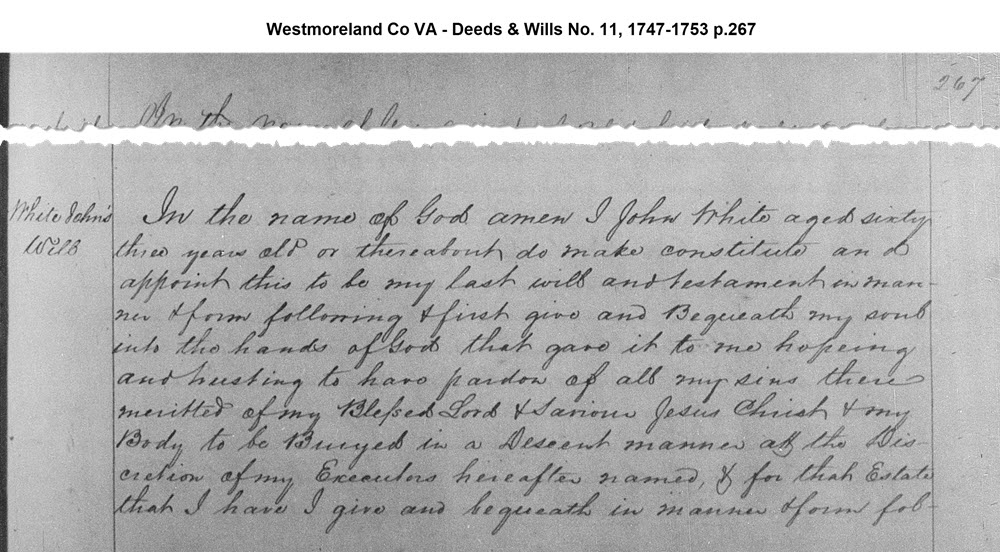 Westmoreland Co VA - Deeds & Wills No. 11, 1747-1753 p.267
267
In the name of
White John's
Will
In the name of God amen I John White aged sixty
three years old or thereabout do make constitute and
appoint this to be my last will and testament in man-
ner & form following & first give and Bequeath my soul
into the hands of God that gave it to me hopeing
and trusting to have pardon of all my sins there
meritted of my Blessed Lord & Saviour Jesus Christ & my
Body to be Buryed in a Descent manner att the Dis-
cretion of my Executors hereafter named, & for that Estate
that I have I give and bequeath in manner & form fol-